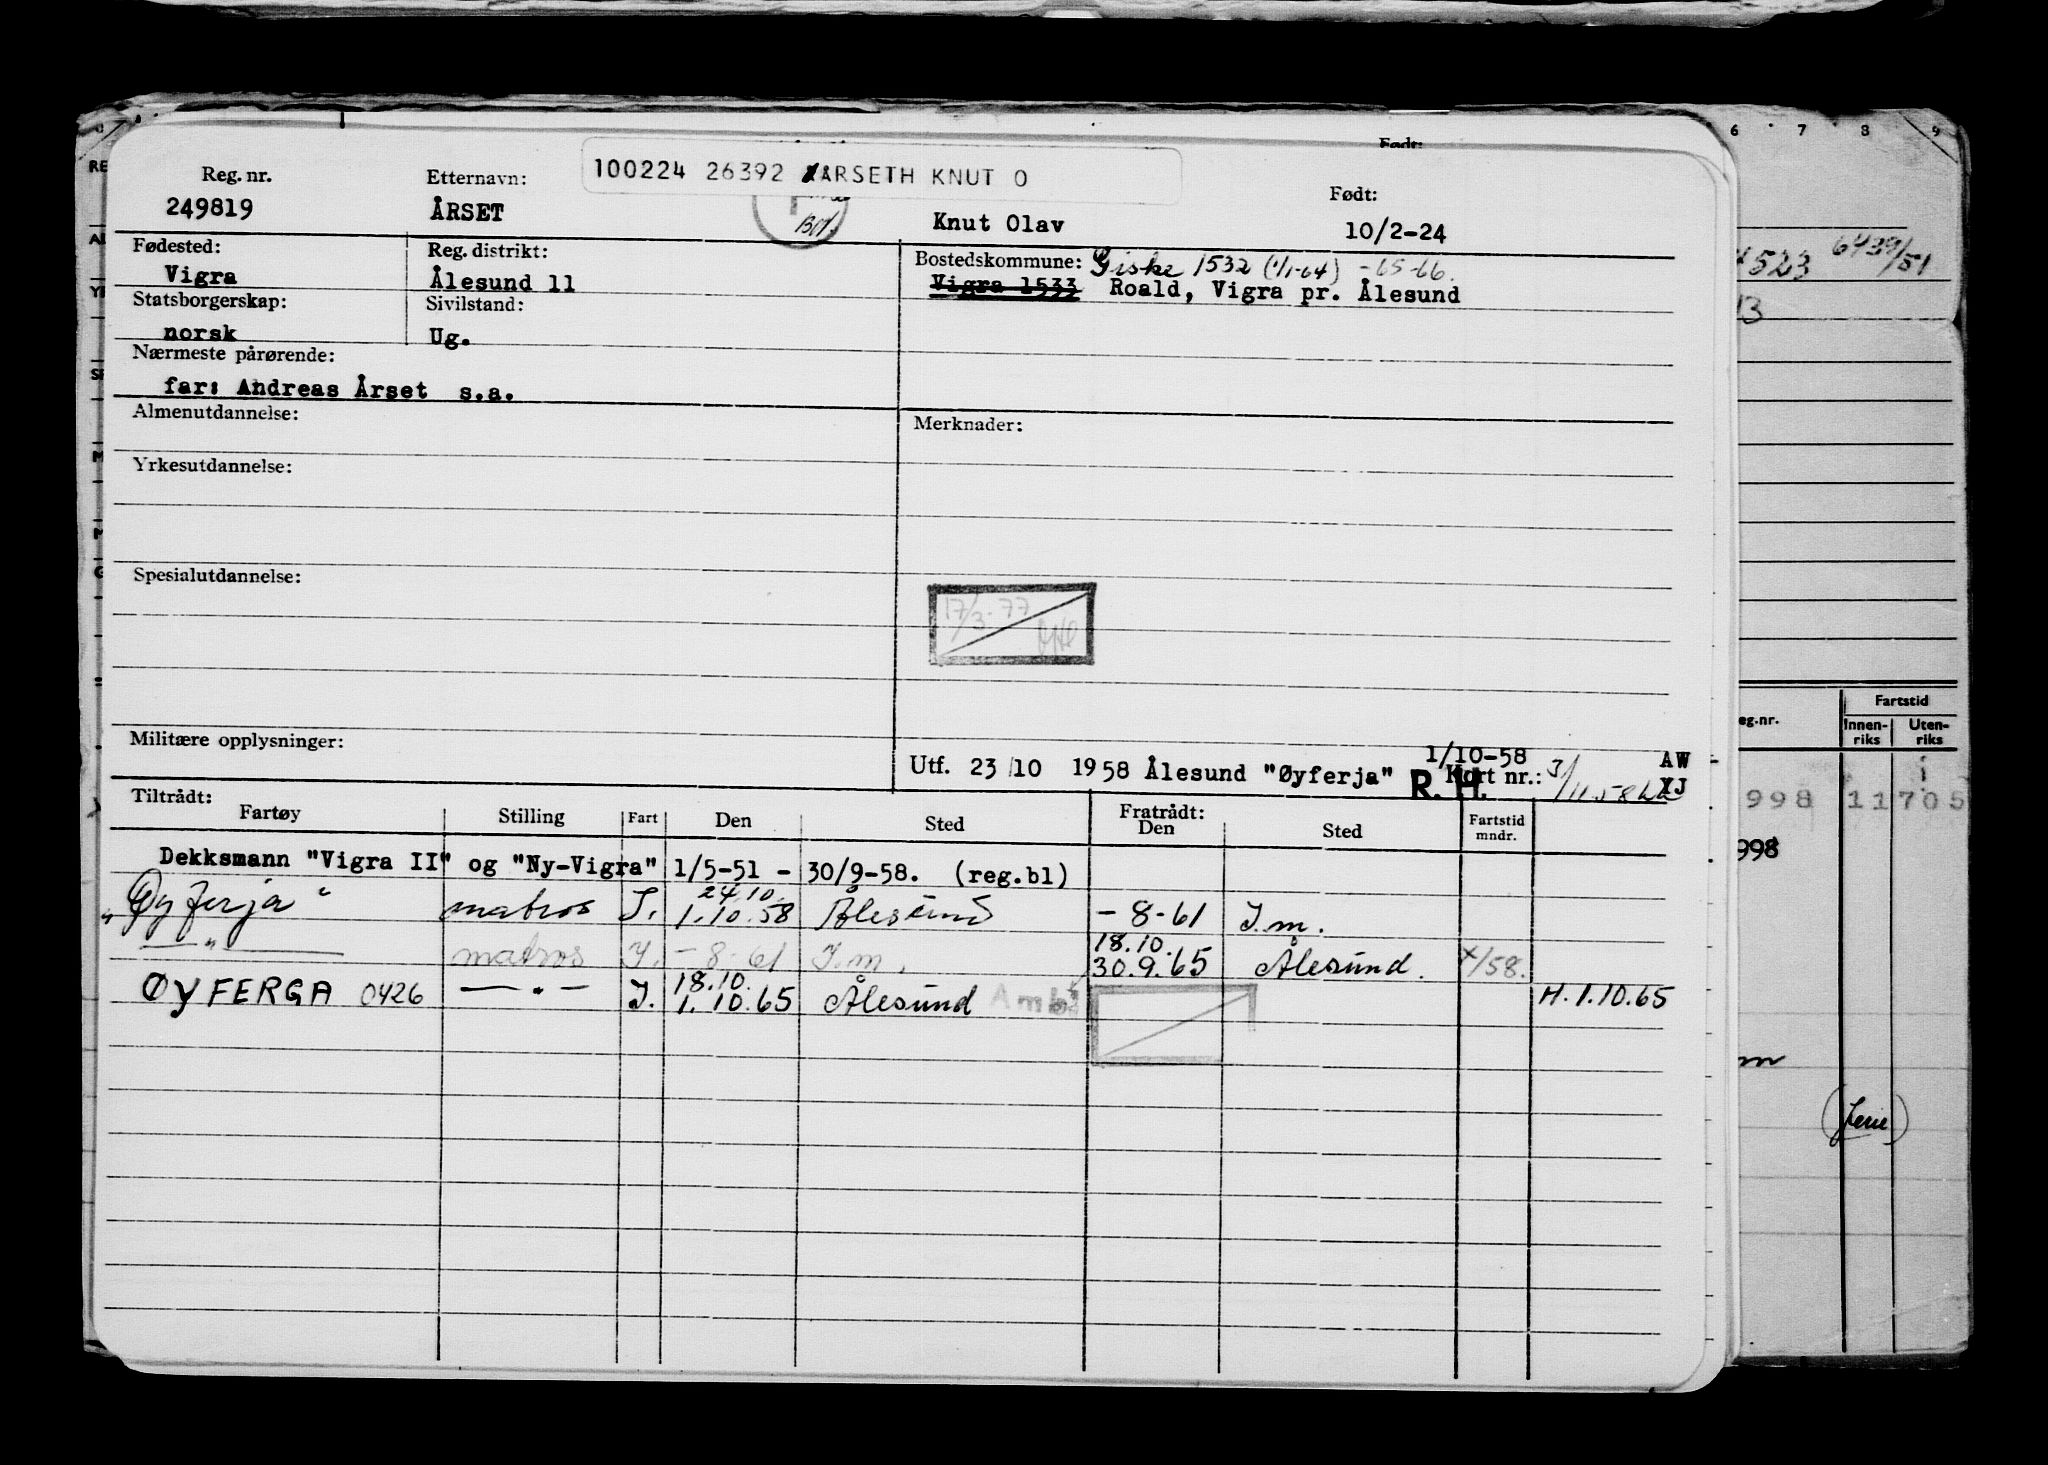 Født:
100224 26392 ÅRSETH KNUT O
Reg. nr. Etternavn: Født:
249819 ÅRSET Knut Olav 10/2-24
Fødested: Reg. distrikt: Bostedskommune: Giske 1532 (1/1-64) -65-66.
Vigra Ålesund 11 Vigra 1533 Roald, Vigra pr. Ålesund
Statsborgerskap: Sivilstand:
norsk Ug.
Nærmeste pårørende:
far: Andreas Årset s.a.
Almenutdannelse: Merknader:
Yrkesutdannelse:
Spesialutdannelse:
17/3-77
Militære opplysninger:
1/10-58 AW
Utf. 23/10 1958 Ålesund "Øyferja" R. H. Kort nr.: 3/11.58 XJ
Tiltrådt: Fratrådt:
Fartøy Stilling Fart Den Sted Den Sted Fartstid mndr.
Dekksmann "Vigra II" og "Ny-Vigra" 1/5-51 - 30/9-58. (reg.bl)
24.10.
"Øyferja" matros I. 1.10.58 Ålesund - 8-61 I.m.
18.10.
—"— matros I. -8-61 I.m. 30.9.65 Ålesund. x/58.
18.10.
ØYFERGA 0426 —"— I. 1.10.65 Ålesund Amb H. 1.10.65
6 7 8 9
4523 6439/51
13
eg.nr. Fartstid
Innen-riks Uten-riks
998 11705
998
m
(ferie)